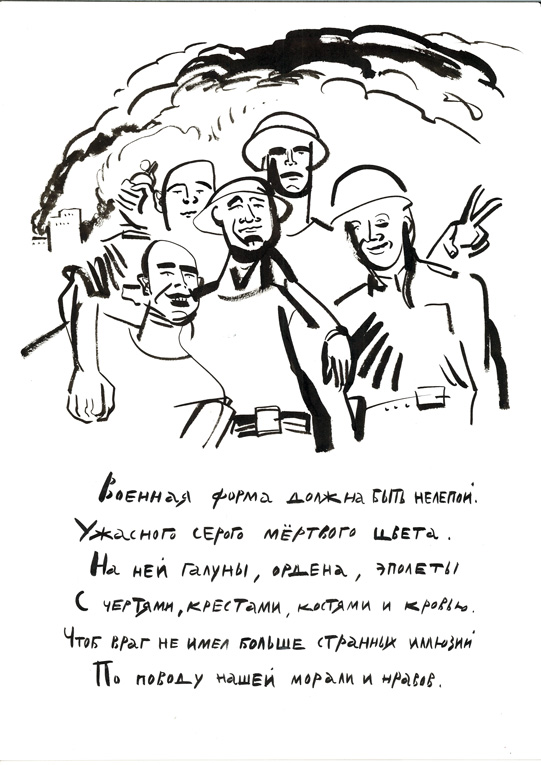 Военная форма должна быть нелепой.
Ужасного серого мёртвого цвета.
На ней галуны, ордена, эполеты
С чертями, крестами, костями и кровью.
Чтоб враг не имел больше странных иллюзий
По поводу нашей морали и нравов.